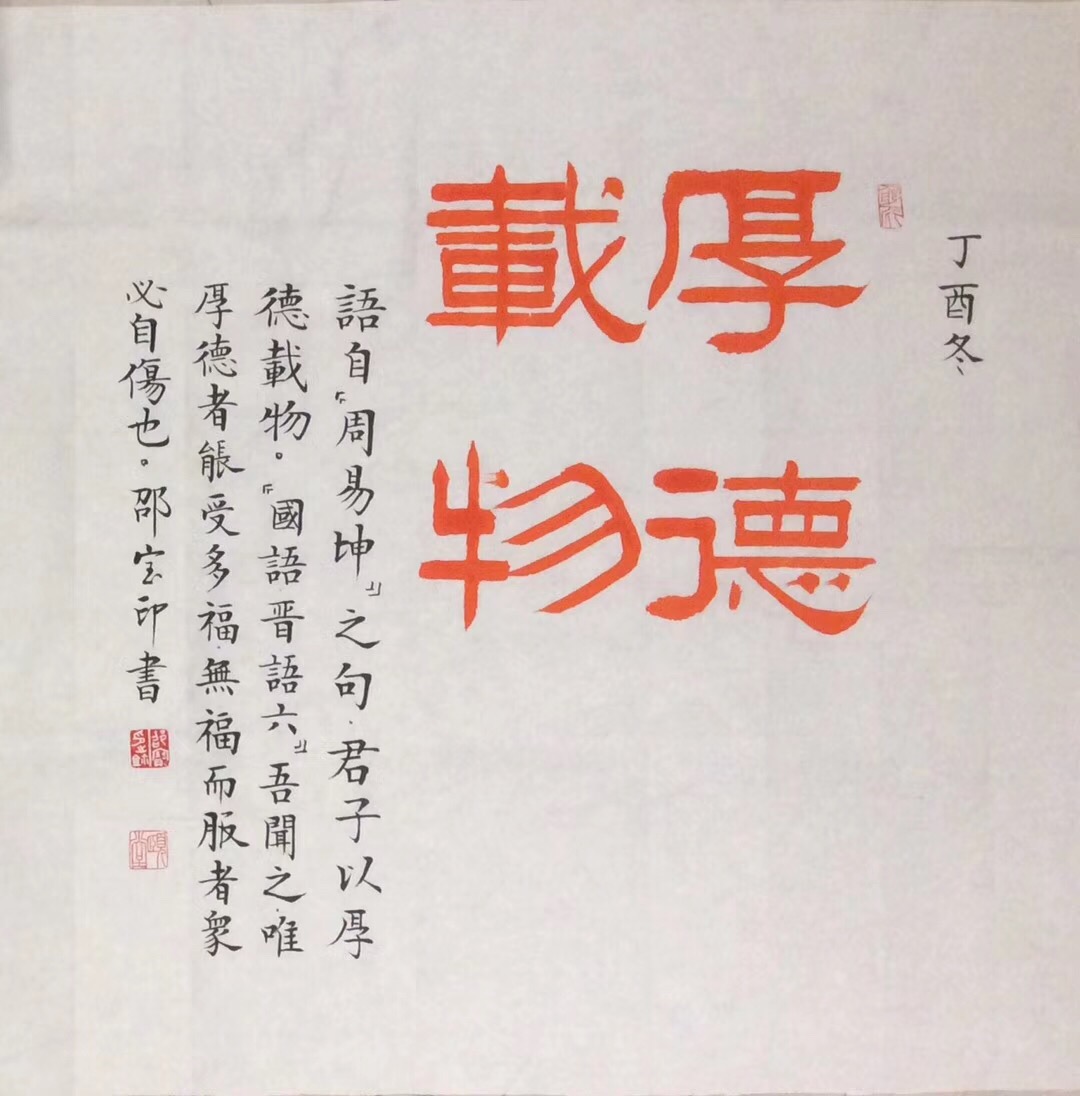 丁酉冬
厚德
載物
語自『周易坤』之句.君子以厚
德載物。『國語晋語六』吾聞之.唯
厚德者能受多福.無福而服者衆
必自傷也。邵宝印書